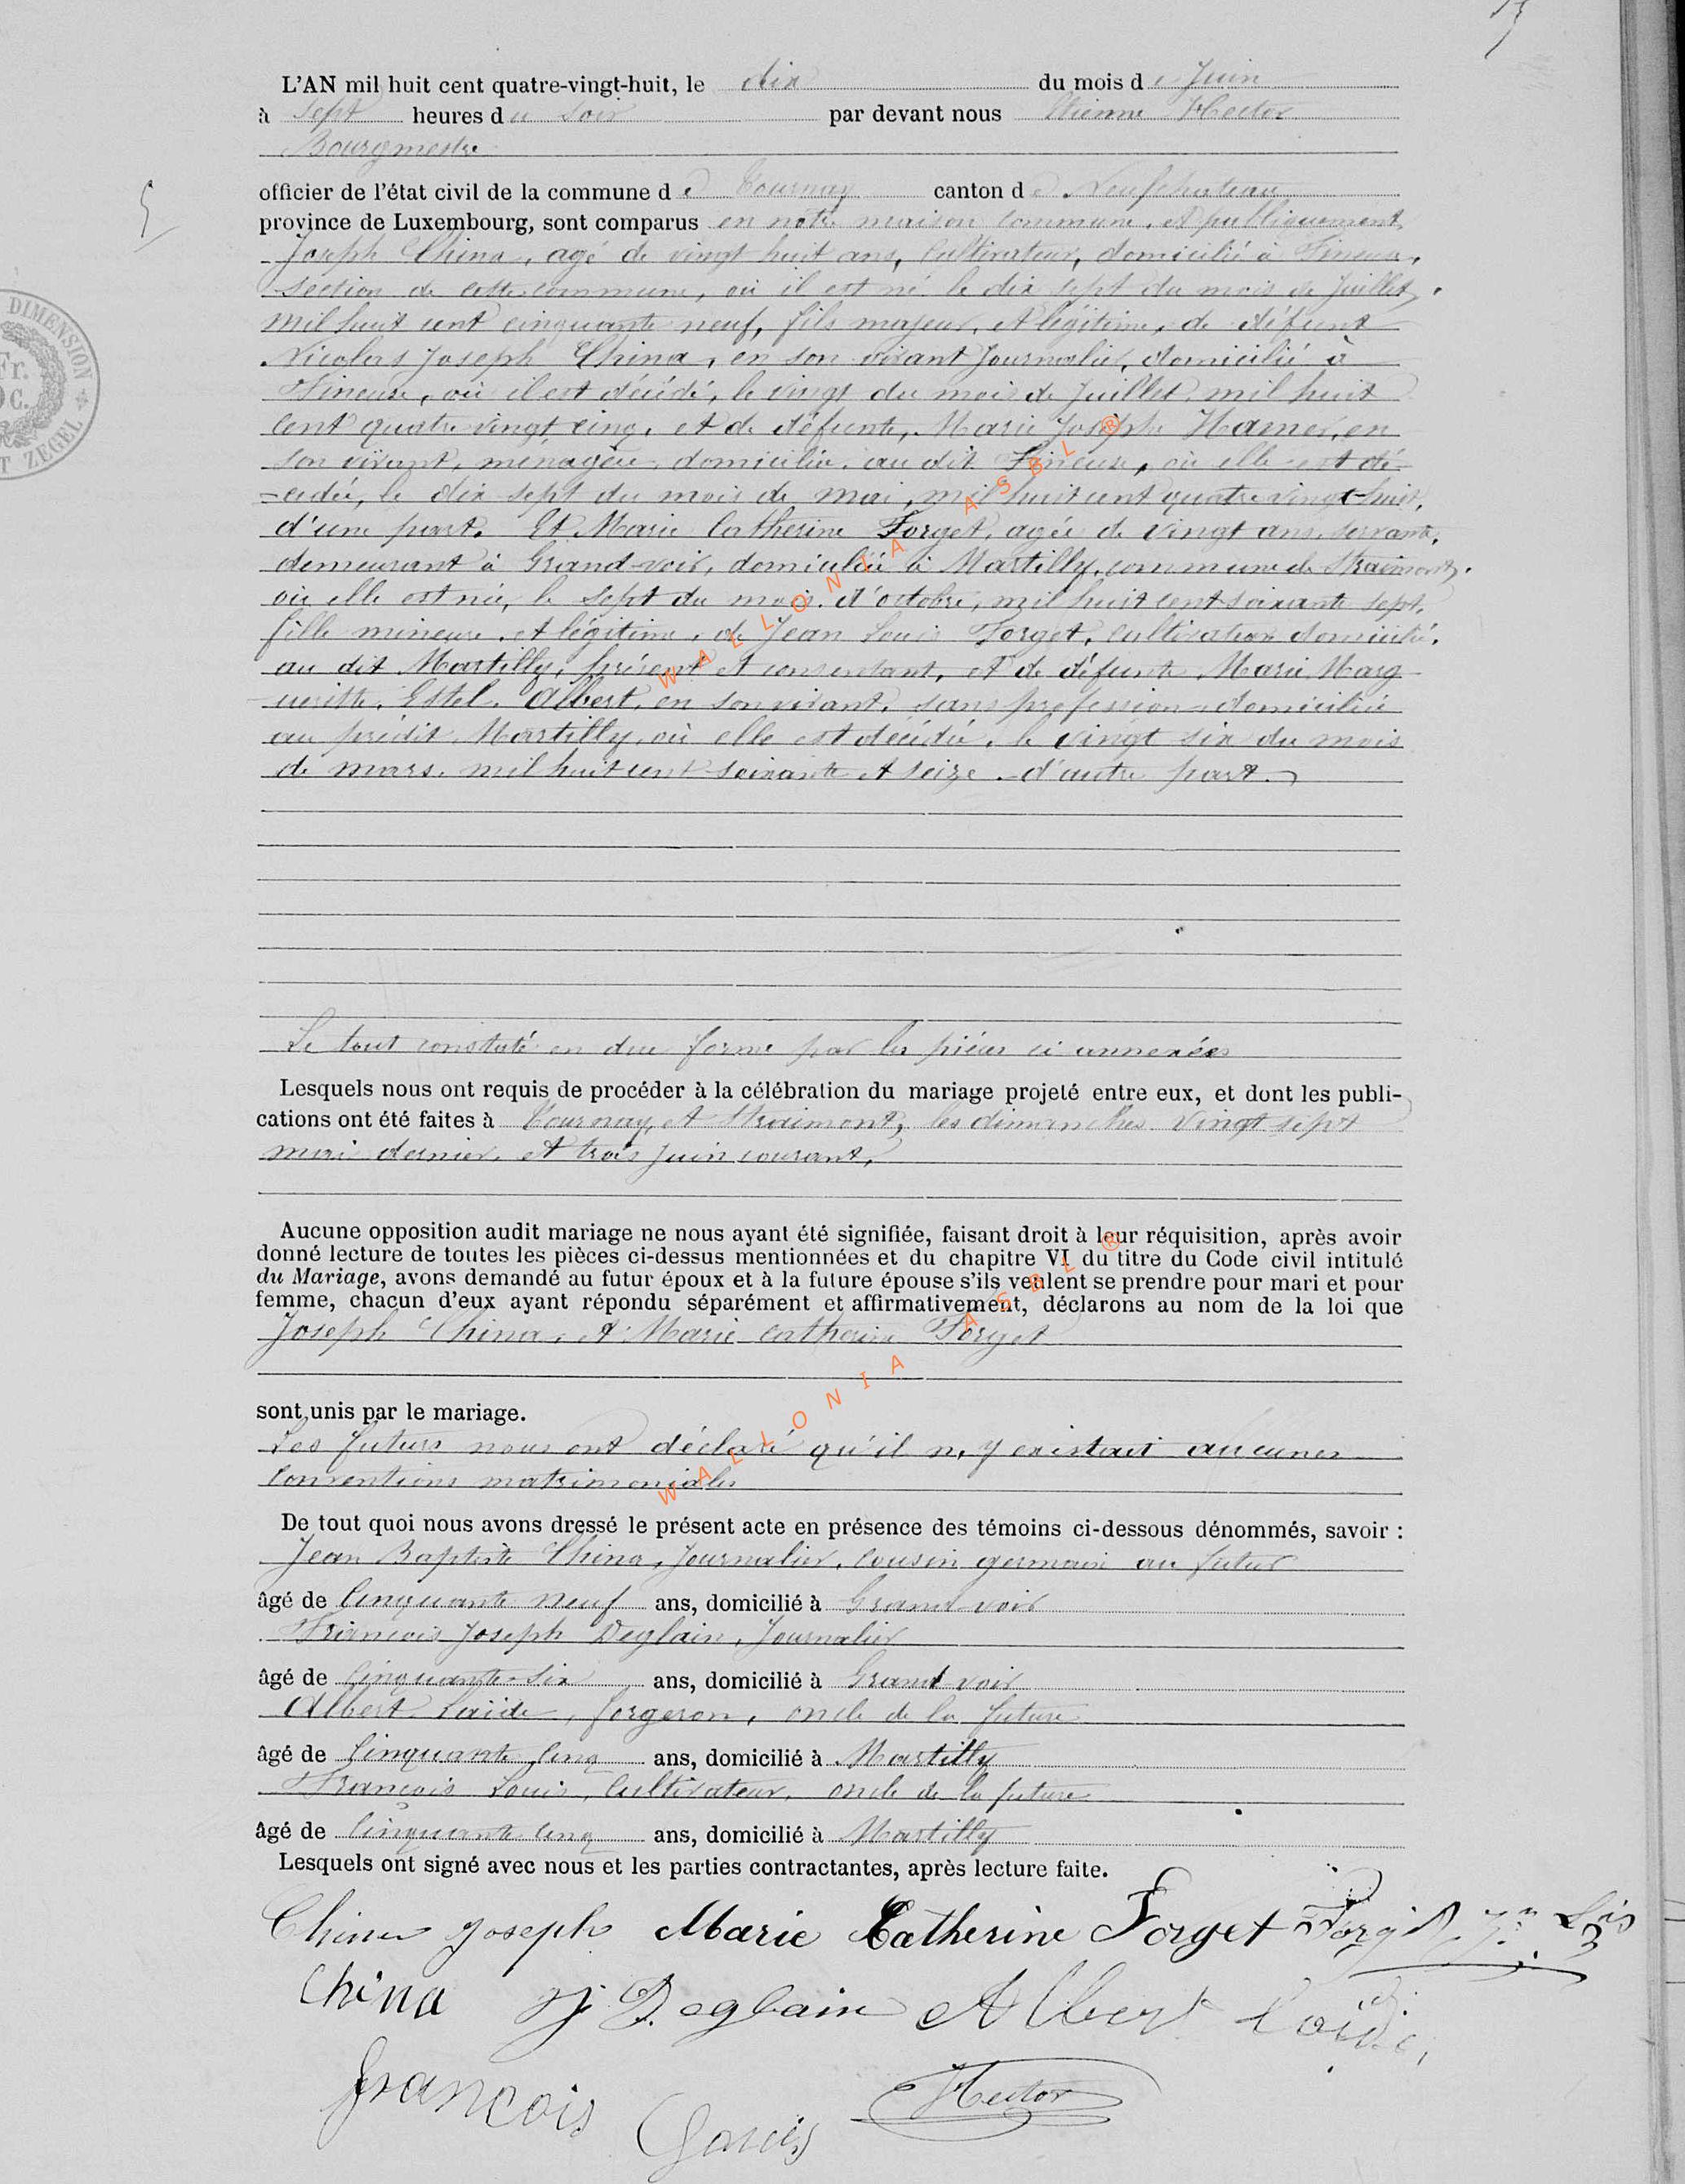 L'AN mil huit cent quatre-vingt-huit, le dix du mois de Juin
à Sept heures du Soir par devant nous Etienne Hector
Bourgmestre
officier de l'état civil de la commune de Tournay canton de Neufchateau
province de Luxembourg, sont comparus en notre maison commune, et publiquement
Joseph China, agé de vingt huit ans, Cultivateur, domicilié à Tineuse,
section de cette commune, où il est né le dix sept du mois de Juillet,
mil huit cent cinquante neuf, fils majeur, et légitime, de défunt
Nicolas Joseph China, en son vivant Journalier, domicilié à
Tineuse, où il est décédé, le vingt du mois de Juillet mil huit
cent quatre vingt cinq, et de défunte, Marie Josèphe Hamer, en
son vivant, ménagère, domiciliée au dit Tineuse, où elle est dé-
-cedée, le dix sept du mois de mai, mil huit cent quatre vingt-huit,
d'une part. Et Marie Catherine Forget, agée de vingt ans, servante,
demeurant à Grand-voir, domiciliée à Martilly, commune de Straimont,
où elle est née, le sept du mois d'octobre, mil huit cent soixante sept,
fille mineure, et légitime, de Jean Louis Forget, cultivateur domicilié,
au dit Martilly, présent et consentant, et de défunte Marie Marg
ueritte, Estel, Albert, en son vivant, sans profession domiciliée
au prédit Martilly, où elle est décédée, le vingt six du mois
de mars, mil huit cent soixante et seize - d'autre part.
Le tout constaté en due forme par les pièces ci annexées
Lesquels nous ont requis de procéder à la célébration du mariage projeté entre eux, et dont les publi-
cations ont été faites à Tournay, et Straimont, les dimanches vingt sept
mai dernier, et trois juin courant,
Aucune opposition audit mariage ne nous ayant été signifiée, faisant droit à leur réquisition, après avoir
donné lecture de toutes les pièces ci-dessus mentionnées et du chapitre VI du titre du Code civil intitulé
du Mariage, avons demandé au futur époux et à la future épouse s'ils veulent se prendre pour mari et pour
femme, chacun d'eux ayant répondu séparément et affirmativement, déclarons au nom de la loi que
Joseph China, et Marie Catherine Forget
sont unis par le mariage.
Les futurs nous ont déclaré qu'il n'y existait aucunes
conventions matrimoniales
De tout quoi nous avons dressé le présent acte en présence des témoins ci-dessous dénommés, savoir :
Jean Baptiste China, Journalier, cousin germain au futur
âgé de Cinquante neuf ans, domicilié à Grand-voir
François Joseph Deglain, Journalier
âgé de Cinquante-six ans, domicilié à Grand voir
Albert Laïde, forgeron, oncle de la future
âgé de Cinquante cinq ans, domicilié à Martilly
François Louis, Cultivateur, oncle de la future
âgé de Cinquante cinq ans, domicilié à Martilly
Lesquels ont signé avec nous et les parties contractantes, après lecture faite.
China Joseph Marie Catherine Forget Forget Jn Lis
China fj Deglain Albert Laïde
françois Louis Hector
DIMENSION
Fr.
C.
T ZEGEL
5
WALLONIA ASBL ®
WALLONIA ASBL ®